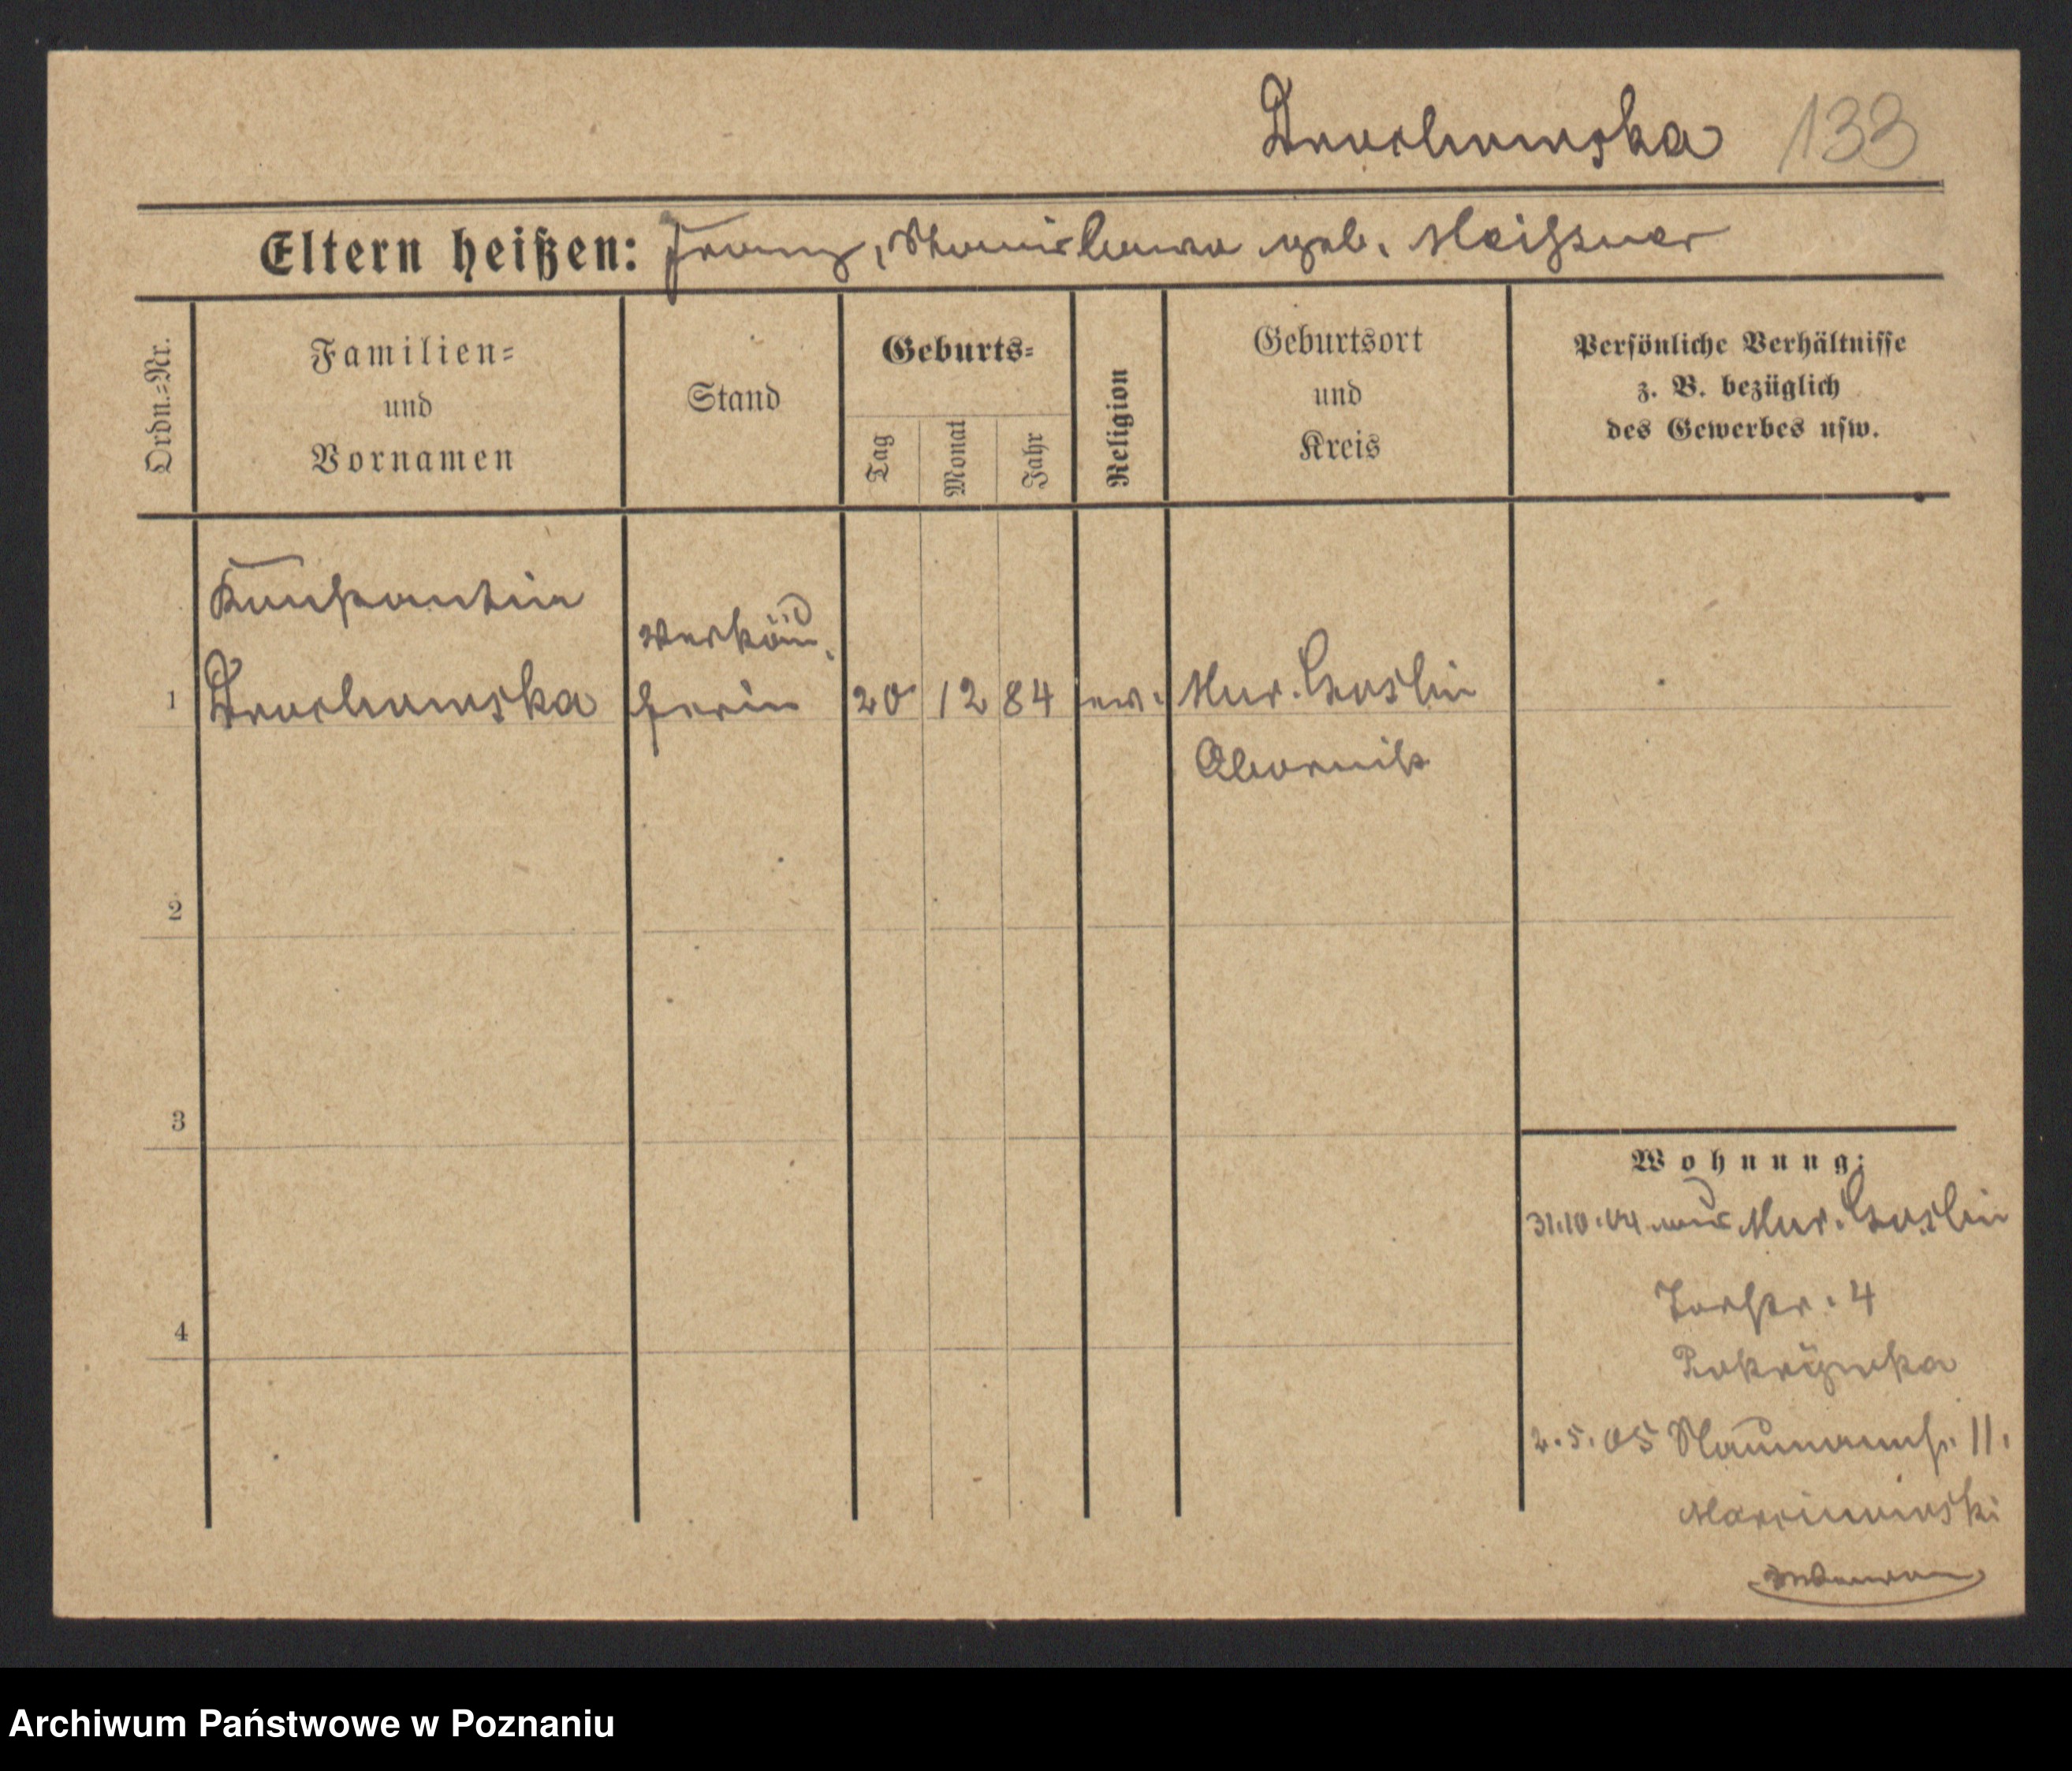 Drochowska 133
Eltern heißen: Franz, Stanislawa geb. Meißner
Ordn.=Nr.
Familien=
und
Vornamen
Stand
Geburts=
Tag
Monat
Jahr
Religion
Geburtsort
und
Kreis
Persönliche Verhältnisse
z. B. bezüglich
des Gewerbes usw.
Konstantin
Verkäu
1 Drochowska ferin 20 12 84 ev. Mur. Goslin
Obornik
2
3
4
Wohnung:
31.10.04 aus Mur. Goslin
Torstr. 4
2.5.05 Naumannstr. 11.
Archiwum Państwowe w Poznaniu